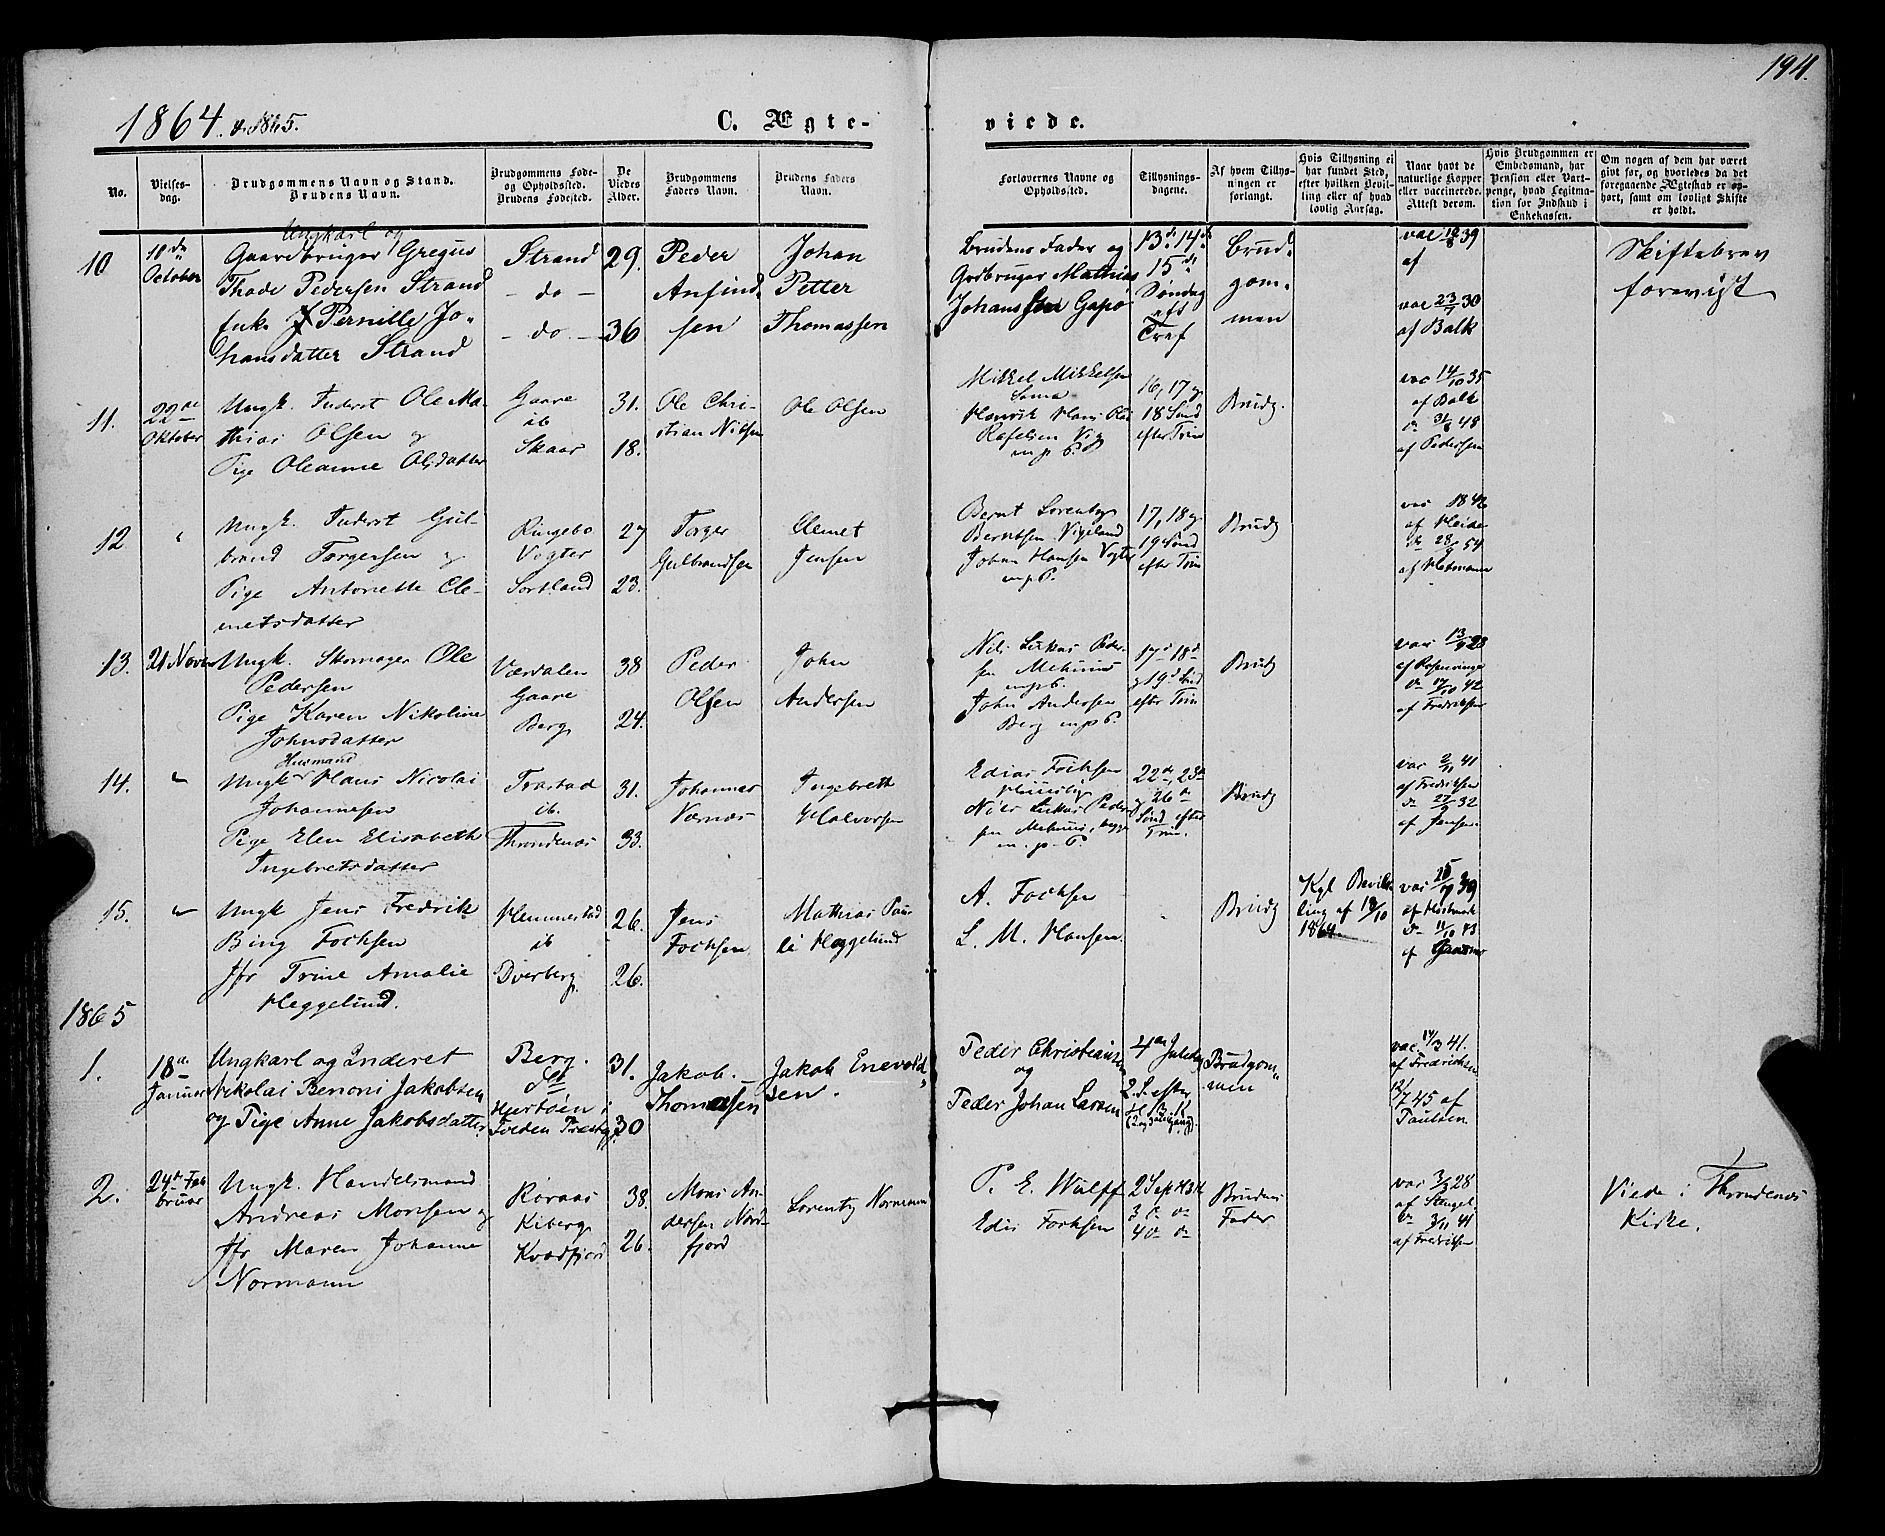 194.
1864. & 1865.
C. Ægte-
viede.
No.
Vielses-
dag.
Brudgommens Navn og Stand.
Brudens Navn.
Brudgommens Føde-
og Opholdssted.
Brudens Fødested.
De
Viedes
Alder.
Brudgommens
Faders Navn.
Brudens Faders
Navn.
Forlovernes Navne og
Opholdssted.
Tillysnings-
dagene.
Af hvem Tillys-
ningen er
forlangt.
Hvis Tillysning ei
har fundet Sted,
efter hvilken Bevil-
ling eller af hvad
lovlig Aarsag.
Naar havt de
naturlige Kopper
eller vaccinerede.
Attest derom.
Hvis Brudgommen er
Embedsmand, har
Pension eller Vart-
penge, hvad Legitima-
tion for Indskud i
Enkekassen.
Om nogen af dem har været
gift før, og hvorledes da det
foregaaende Ægteskab er op-
hørt, samt om lovligt Skifte
er holdt.
10
18de
October
Ungkarl og
Gaardbruger Gregus
Thode Pedersen Strand
Enke Pernille Jo-
hansdatter Strand
Strand
- do -
- do -
29.
36
Peder
Anfind-
sen
Johan
Petter
Thomassen
Brudens Fader og
Grdbruger Mathias
Johanssen Gapø
13de 14de
15de
Søndag
eft
Tref
Brud-
gom-
men
vac 10/8 39
af
vac 23/7 30
af Balk
Skiftebrev
forevist
11.
22de
Oktober
Ungk. Inderst Ole Ma-
thias Olsen og
Pige Oleanne Olsdatter
Gaare
ib
Skaar
31.
18.
Ole Chri-
stian Nilsen
Ole Olsen
Mikkel Mikkelsen
Sama
Henrik Hans Ola
Rafelsen Vig
m p P
16, 17 og
18 Sønd
efter Trin
Brudg.
vac 14/10 35
af Balk
do 3/8 48
af Pedersen
12
"
Ungk. Inderst Gul-
brand Torgersen og
Pige Antonette Cle-
metsdatter
Ringebo
Vogter
Sortland
27
23.
Torger
Gulbrandsen
Clemet
Jensen
Bernt Lorentz
Berntsen Vigeland
Johan Hansen Vogter
m p P.
17, 18 og
19 Sønd
efter Trin
Brudg
vac 1842
af Heide
do 28/9 54
af Hetmann
13.
21 Novbr
Ungk. Skomager Ole
Pedersen
Pige Karen Nikoline
Johnsdatter
Værdalen
Gaare
Berg
38
24.
Peder
Olsen
John
Andersen
Nils Lukas Peder-
sen Mehuus
m p P.
John Andersen
Berg m p P.
17de 18de
og 19de Sønd
efter Trin
Brudg
vac 13/9 28
af Rosenvinge
do 17/10 42
af Fredriksen
14.
"
Husmand
Ungk Hans Nicolai
Johannesen
Pige Elen Elisabeth
Ingebretsdatter
Trastad
ib.
Throndenæs
31.
33.
Johannes
Værnæs
Ingebrett
Halvorsen
Edias Fochsen
Nils Lukas Peder-
sen Mehuus, begge
m. p. P.
22de, 23de
og 26de
Sønd efter
Trin.
Brudg
vac 2/11 41
af Fredriksen
do 27/9 32
af Jensen
15.
"
Ungk Jens Fredrik
Bing Fochsen
Jfr Trine Amalie
Heggelund.
Hemmestad
ib
Dverberg
26.
26.
Jens
Fochsen
Mathias Pau-
li Heggelund
A. Fochsen
L. M. Hansen.
Brudg
Kgl Bevil-
ling af 18/10
1864
vac 25/9 39
af Hostmark
do 11/10 43
af
1865
1.
18de
Januar
Ungkarl og Inderst
Nikolai Benoni Jakobsen
og Pige Anne Jakobsdatter.
Berg.
Hjertøen i
31.
30
Jakob.
Thomassen
Jakob Enevold-
sen.
Peder Christiansen
og
Peder Johan Larsen
4de Juledag
2. S. efter
H 3 K
Brudgom-
men
vac 14/3 41.
af Fredriksen
12/7 45 af
Paulsen
2.
24de Feb-
bruar
Ungk. Handelsmand
Andreas Monsen og
Jfr Maren Johanne
Normann
Røraas
Kiberg
Kvædfjord
38.
26.
Mons An-
dersen Nord-
fjord
Lorentz Normann
P. E. Wulff
Edis Fochsen
2 S. ept H3K
3 do do
4 do do
Brudens
Fader
vac 3/3 28
af Stengel
do 3/11 41
af Fredriksen
Viede i Throndenæs
Kirke.